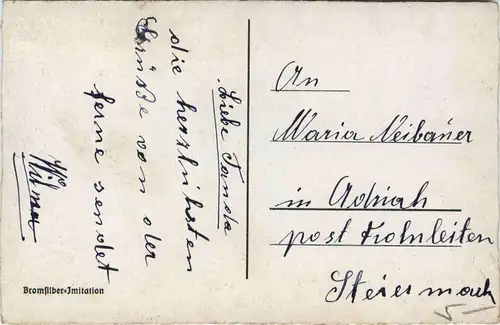 Liebe Tanda
die herzlihsten
Grüße von der
ferne sendet
Wilma
An
Maria Neibauer
in Adriah
post Frohnleiten
Steiermark
Bromsilber-Imitation